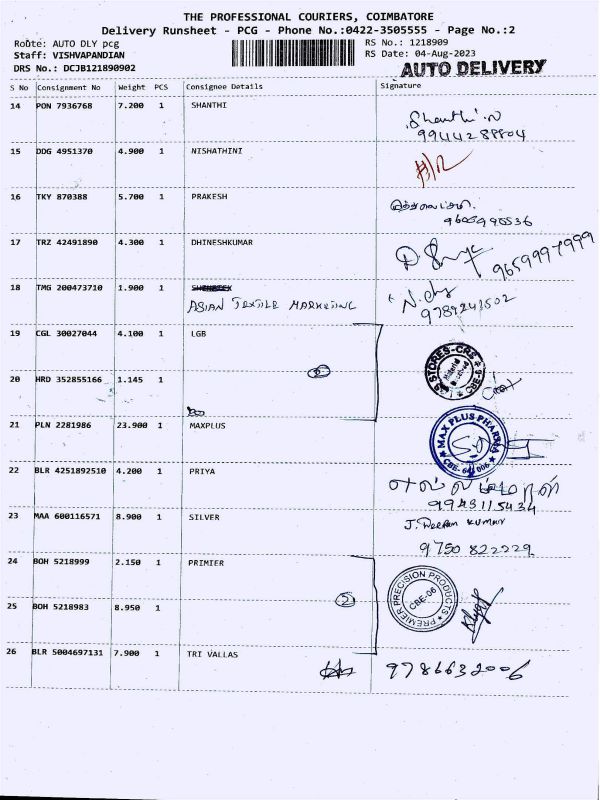 THE PROFESSIONAL COURIERS, COIMBATORE
Delivery Runsheet - PCG - Phone No.:0422-3505555 - Page No.:2
Route: AUTO DLY pcg RS No.: 1218909
Staff: VISHVAPANDIAN RS Date: 04-Aug-2023
DRS No.: DCJB121890902 AUTO DELIVERY
S No Consignment No Weight PCS Consignee Details Signature
14 PON 7936768 7.200 1 SHANTHI
Shanthi.N
9944288804
15 DDG 4951370 4.900 1 NISHATHINI
16 TKY 870388 5.700 1 PRAKESH
17 TRZ 42491890 4.300 1 DHINESHKUMAR
9659997999
18 TMG 200473710 1.900 1
ASIAN TEXTILE MARKETING
9789241502
19 CGL 30027044 4.100 1 LGB
STORES-CRS
CBE-6
20 HRD 352855166 1.145 1
2
21 PLN 2281986 23.900 1 MAXPLUS
MAX PLUS PHARMA
CBE-641 006
22 BLR 4251892510 4.200 1 PRIYA
9943115434
23 MAA 600116571 8.900 1 SILVER
J. Deepan KUMAR
9750 822229
24 BOH 5218999 2.150 1 PRIMIER
PREMIER PRECISION PRODUCTS
CBE-06
25 BOH 5218983 8.950 1
2
26 BLR 5004697131 7.900 1 TRI VALLAS
9786632006